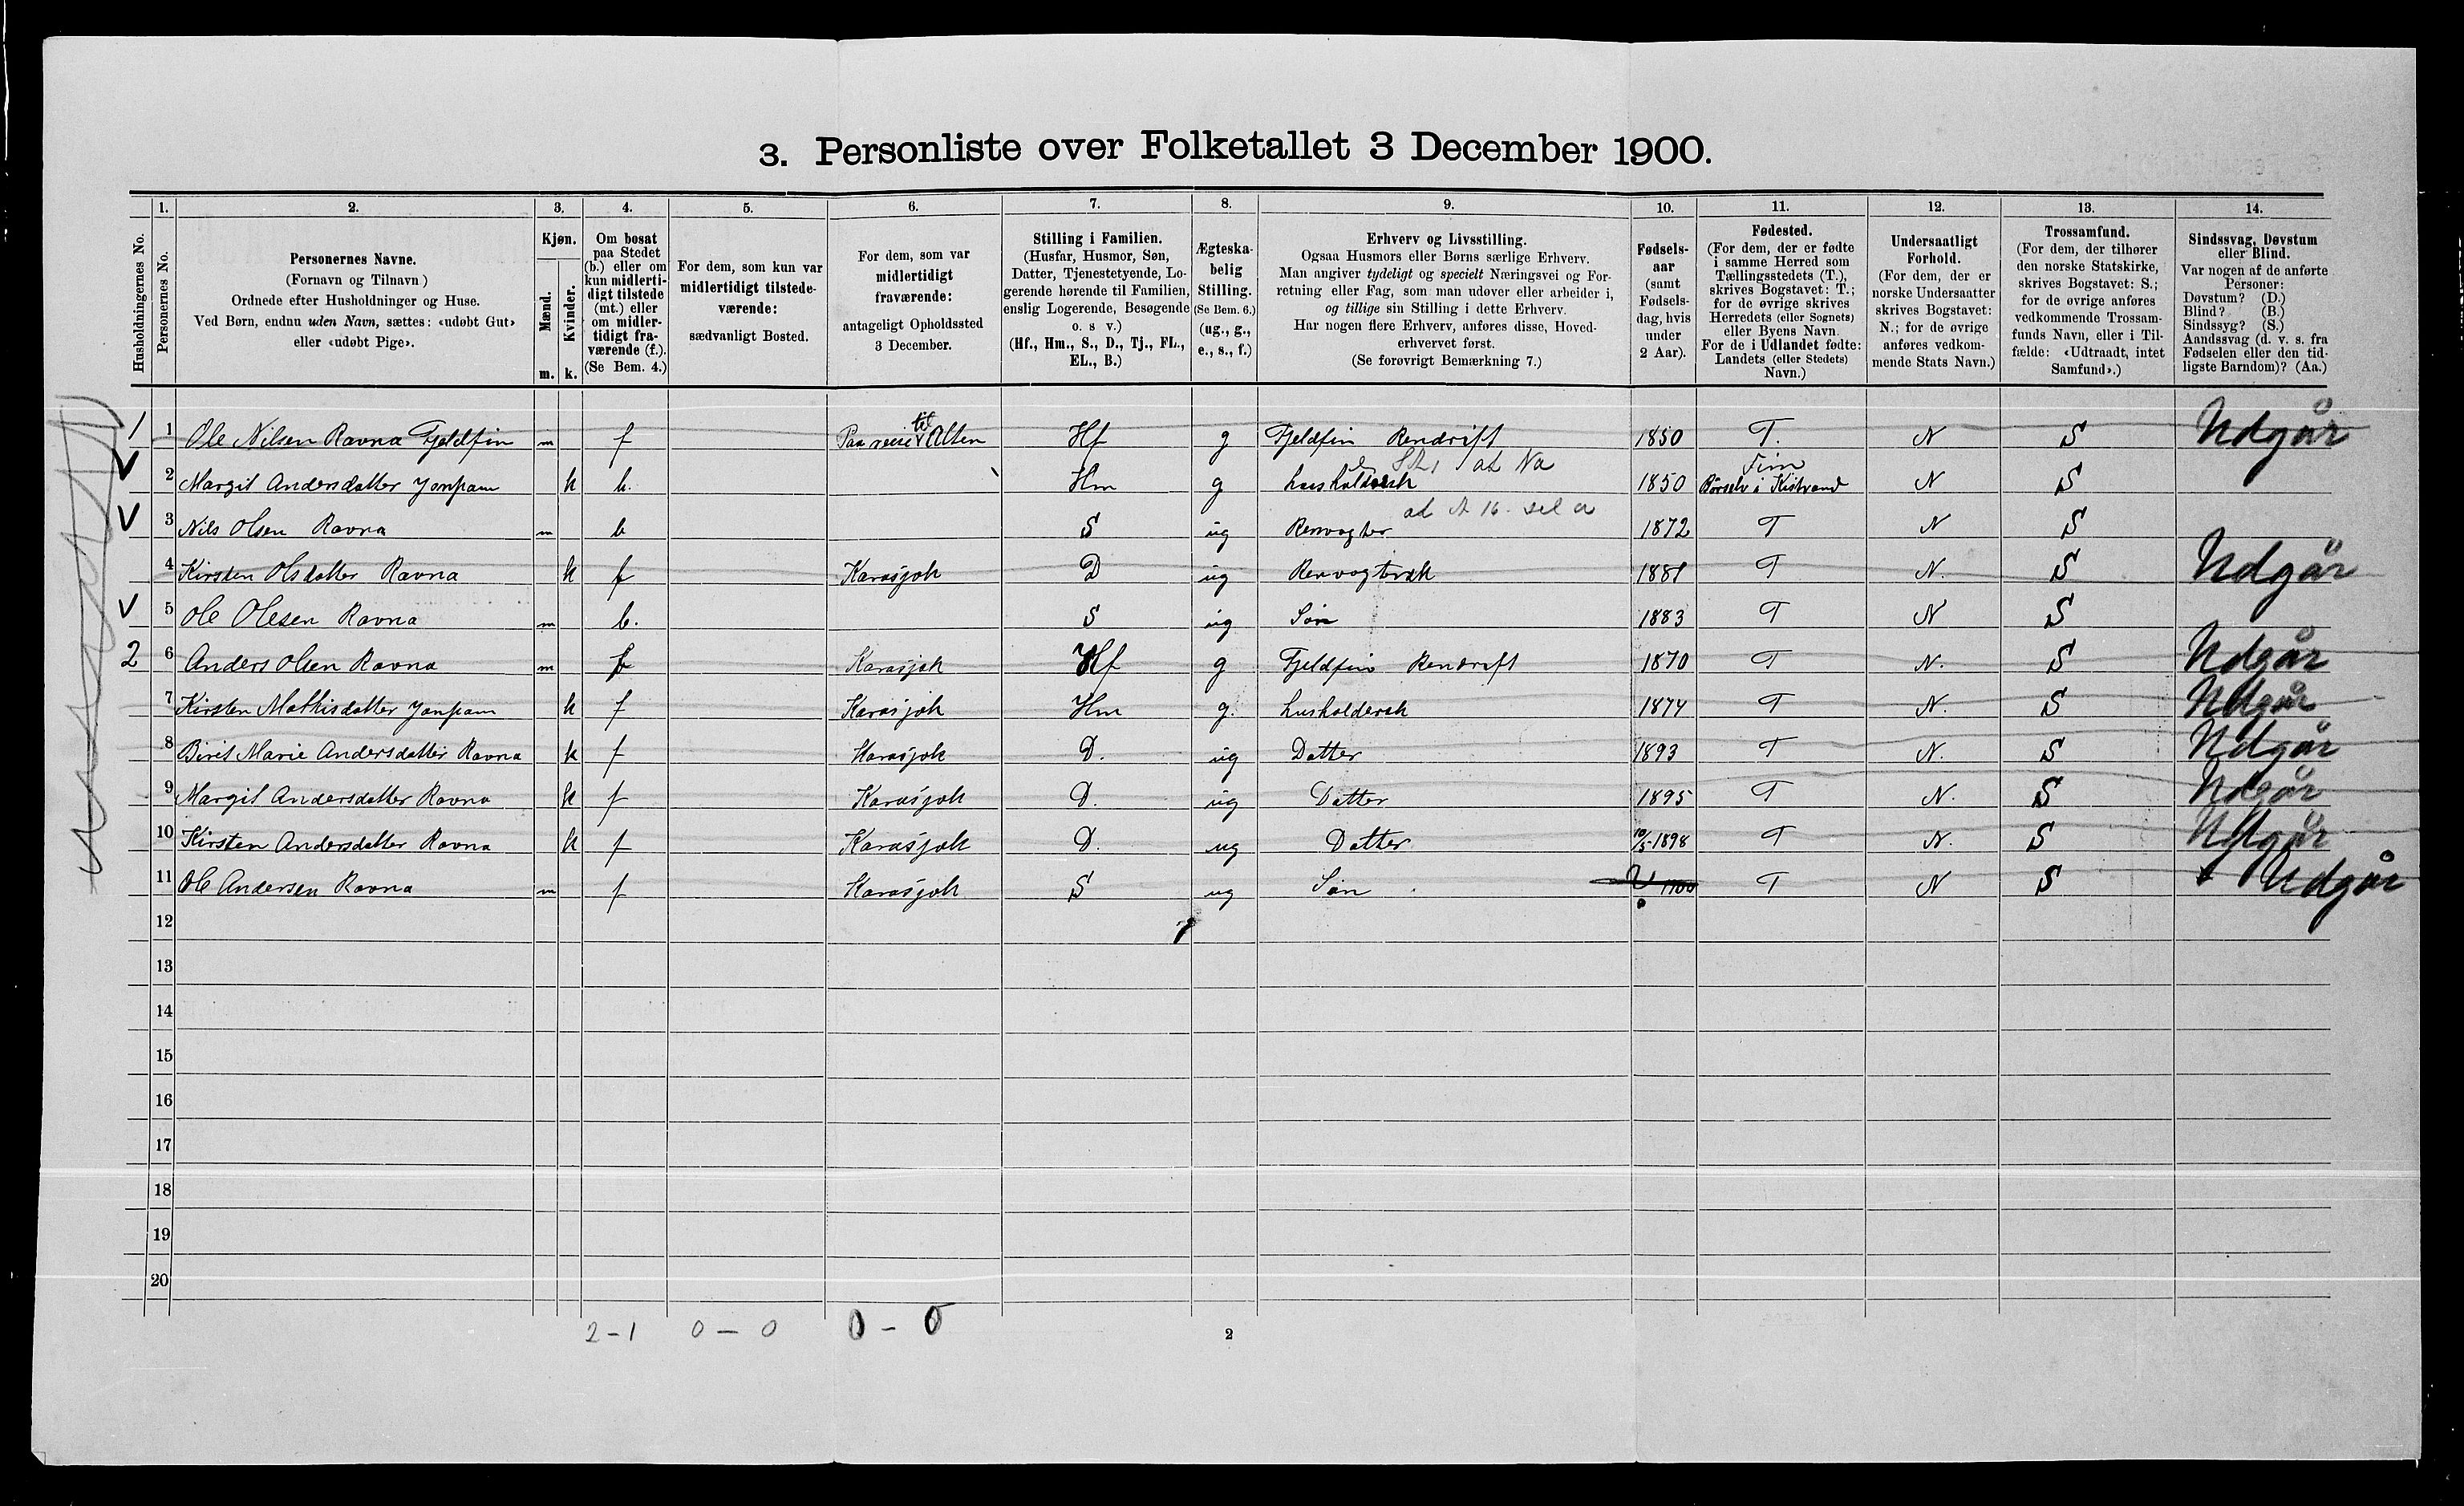 3. Personliste over Folketallet 3 December 1900.
1. 2. 3. 4. 5. 6. 7. 8. 9. 10. 11. 12. 13. 14.
Husholdningernes No.
Personernes No.
Personernes Navne.
(Fornavn og Tilnavn)
Ordnede efter Husholdninger og Huse.
Ved Børn, endnu uden Navn, sættes: «udøbt Gut»
eller «udøbt Pige».
Kjøn.
Mænd.
Kvinder.
m. k.
Om bosat
paa Stedet
(b.) eller om
kun midlerti-
digt tilstede
(mt.) eller
om midler-
tidigt fra-
værende (f.).
(Se Bem. 4.)
For dem, som kun var
midlertidigt tilstede-
værende:
sædvanligt Bosted.
For dem, som var
midlertidigt
fraværende:
antageligt Opholdssted
3 December.
Stilling i Familien.
(Husfar, Husmor, Søn,
Datter, Tjenestetyende, Lo-
gerende hørende til Familien,
enslig Logerende, Besøgende
o. s v.)
(Hf., Hm., S., D., Tj., FL.,
EL., B.)
Ægteska-
belig
Stilling.
(Se Bem. 6.)
(ug., g.,
e., s., f.)
Erhverv og Livsstilling.
Ogsaa Husmors eller Børns særlige Erhverv.
Man angiver tydeligt og specielt Næringsvei og For-
retning eller Fag, som man udøver eller arbeider i,
og tillige sin Stilling i dette Erhverv.
Har nogen flere Erhverv, anføres disse, Hoved-
erhvervet først.
(Se forøvrigt Bemærkning 7.)
Fødsels-
aar
(samt
Fødsels-
dag, hvis
under
2 Aar).
Fødested.
(For dem, der er fødte
i samme Herred som
Tællingsstedets (T.),
skrives Bogstavet: T.;
for de øvrige skrives
Herredets (eller Sognets)
eller Byens Navn.
For de i Udlandet fødte:
Landets (eller Stedets)
Navn.)
Undersaatligt
Forhold.
(For dem, der er
norske Undersaatter
skrives Bogstavet:
N.; for de øvrige
anføres vedkom-
mende Stats Navn.)
Trossamfund.
(For dem, der tilhører
den norske Statskirke,
skrives Bogstavet: S.;
for de øvrige anføres
vedkommende Trossam-
funds Navn, eller i Til-
fælde: «Udtraadt, intet
Samfund».)
Sindssvag, Døvstum
eller Blind.
Var nogen af de anførte
Personer:
Døvstum? (D.)
Blind? (B.)
Sindssyg? (S.)
Aandssvag (d. v. s. fra
Fødselen eller den tid-
ligste Barndom)? (Aa.)
1 1 Ole Nilsen Ravna Fjeldfin m f Paa reise til Alten Hf g Fjeldfin Rendrift 1850 T. N S Udgår
2 Margit Andersdatter k b. Hm g husholdersk 1850 Børselv i Kistrand N S
3 Nils Olsen Ravna m b S ug Renvogter 1872 T N S
4 Kirsten Olsdatter Ravna k f Karasjok D ug Renvogtersk 1881 T N. S Udgår
5 Ole Olesen Ravna m b. S ug Søn 1883 T N S
2 6 Anders Olsen Ravna m f Karasjok Hf g Fjeldfin Rendrift 1870 T N. S Udgår
7 Kirsten Mathisdatter k f Karasjok Hm g. husholdersk 1874 T N. S Udgår
8 Birit Marie Andersdatter Ravna k f Karasjok D. ug Datter 1893 T N. S Udgår
9 Margit Andersdatter Ravna k f Karasjok D. ug Datter 1895 T N. S Udgår
10 Kirsten Andersdatter Ravna k f Karasjok D. ug Datter 10/5-1898 T N. S Udgår
11 Ole Andersen Ravna m f Karasjok S ug Søn T N S Udgår
12
13
14
15
16
17
18
19
20
2-1 0-0 0-0
2